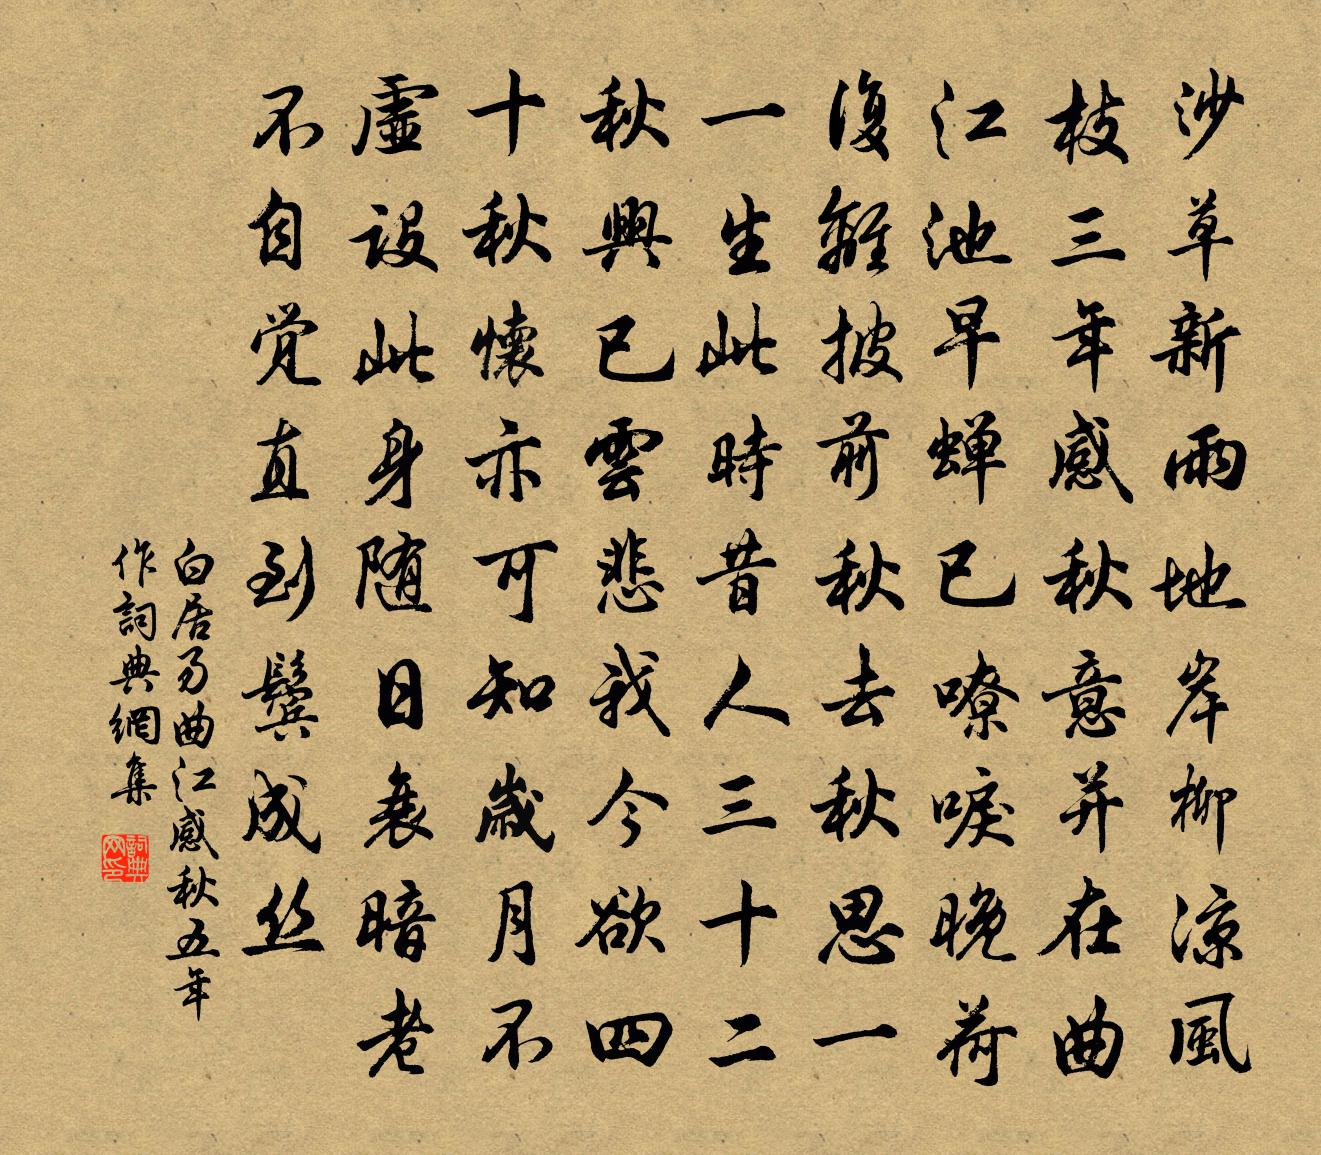 沙草新雨地岸柳涼風
枝三年感秋意并在曲
江池早蝉已嘹唳晚荷
復離披前秋去秋思一
一生此時昔人三十二
秋興已雲悲我今欲四
十秋懷亦可知歲月不
虛設此身随日衰暗老
不自觉直到鬓成丝
白居易曲江感秋五年
作詞典網集
詞典网印